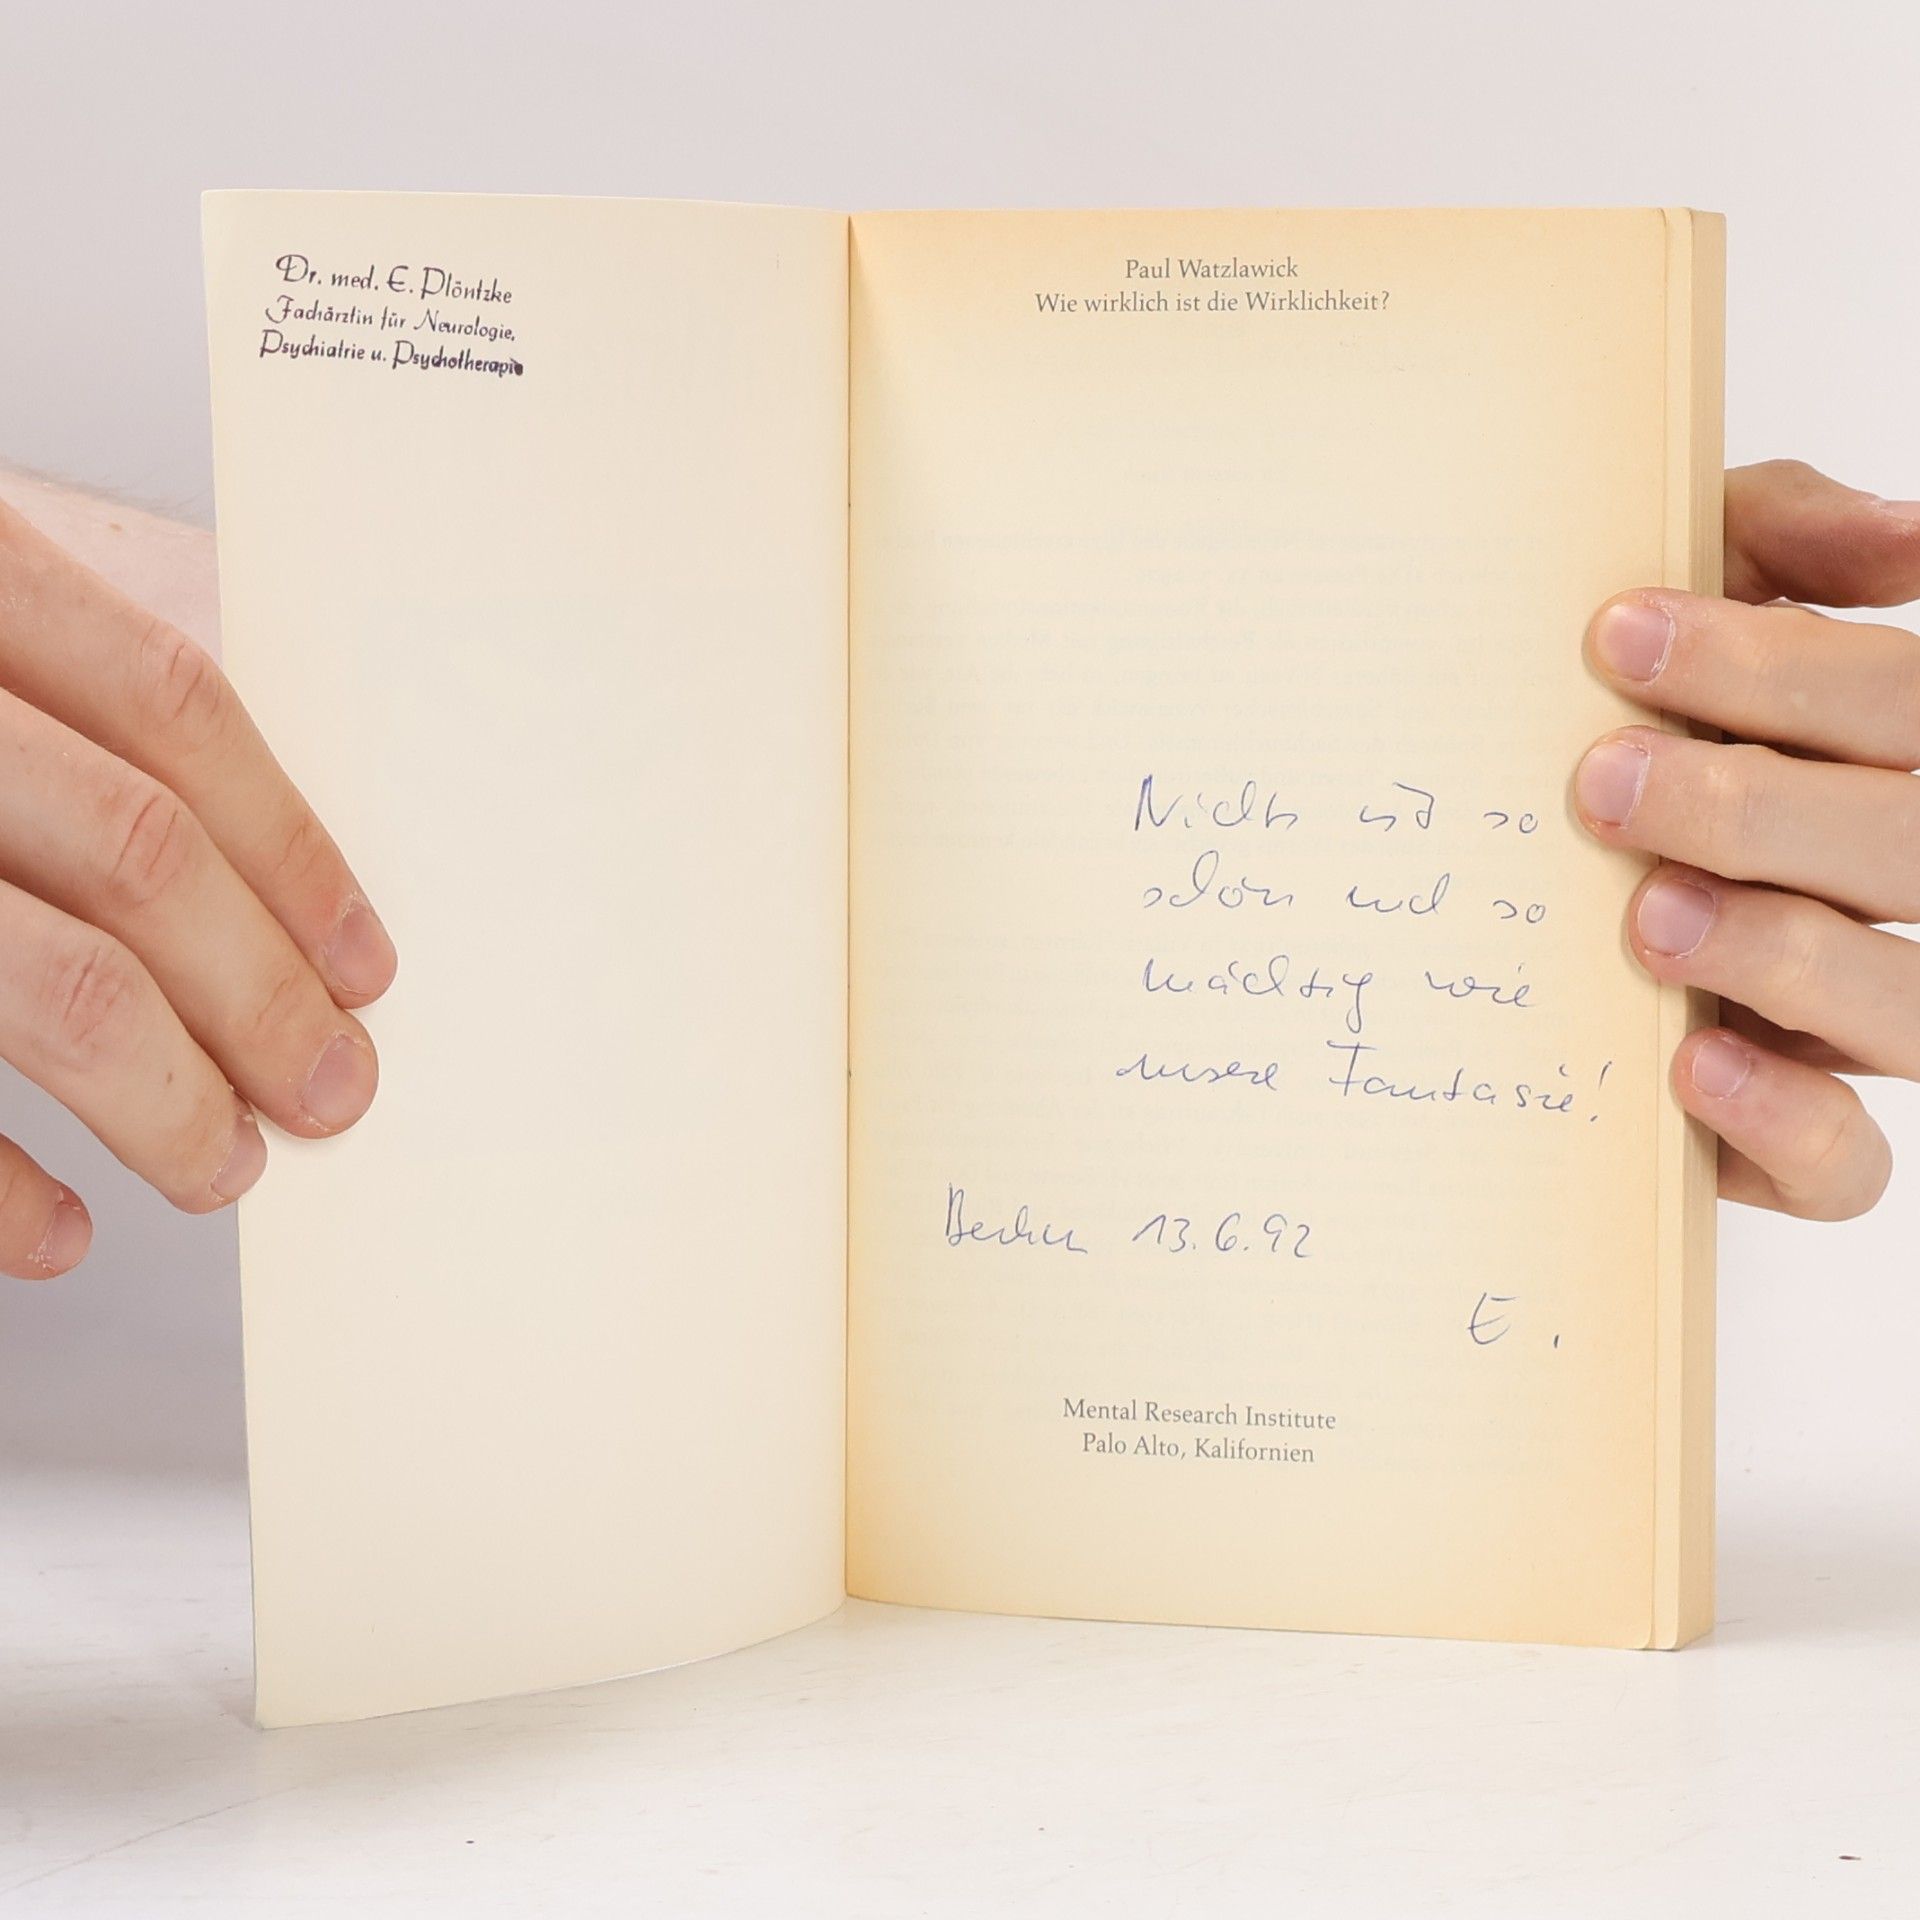 Dr. med. E. Plöntzke
Fachärztin für Neurologie,
Psychiatrie u. Psychotherapie
Paul Watzlawick
Wie wirklich ist die Wirklichkeit?
Nichts ist so
schön und so
mächtig wie
unsere Fantasie!
Berlin 13.6.92
E.
Mental Research Institute
Palo Alto, Kalifornien